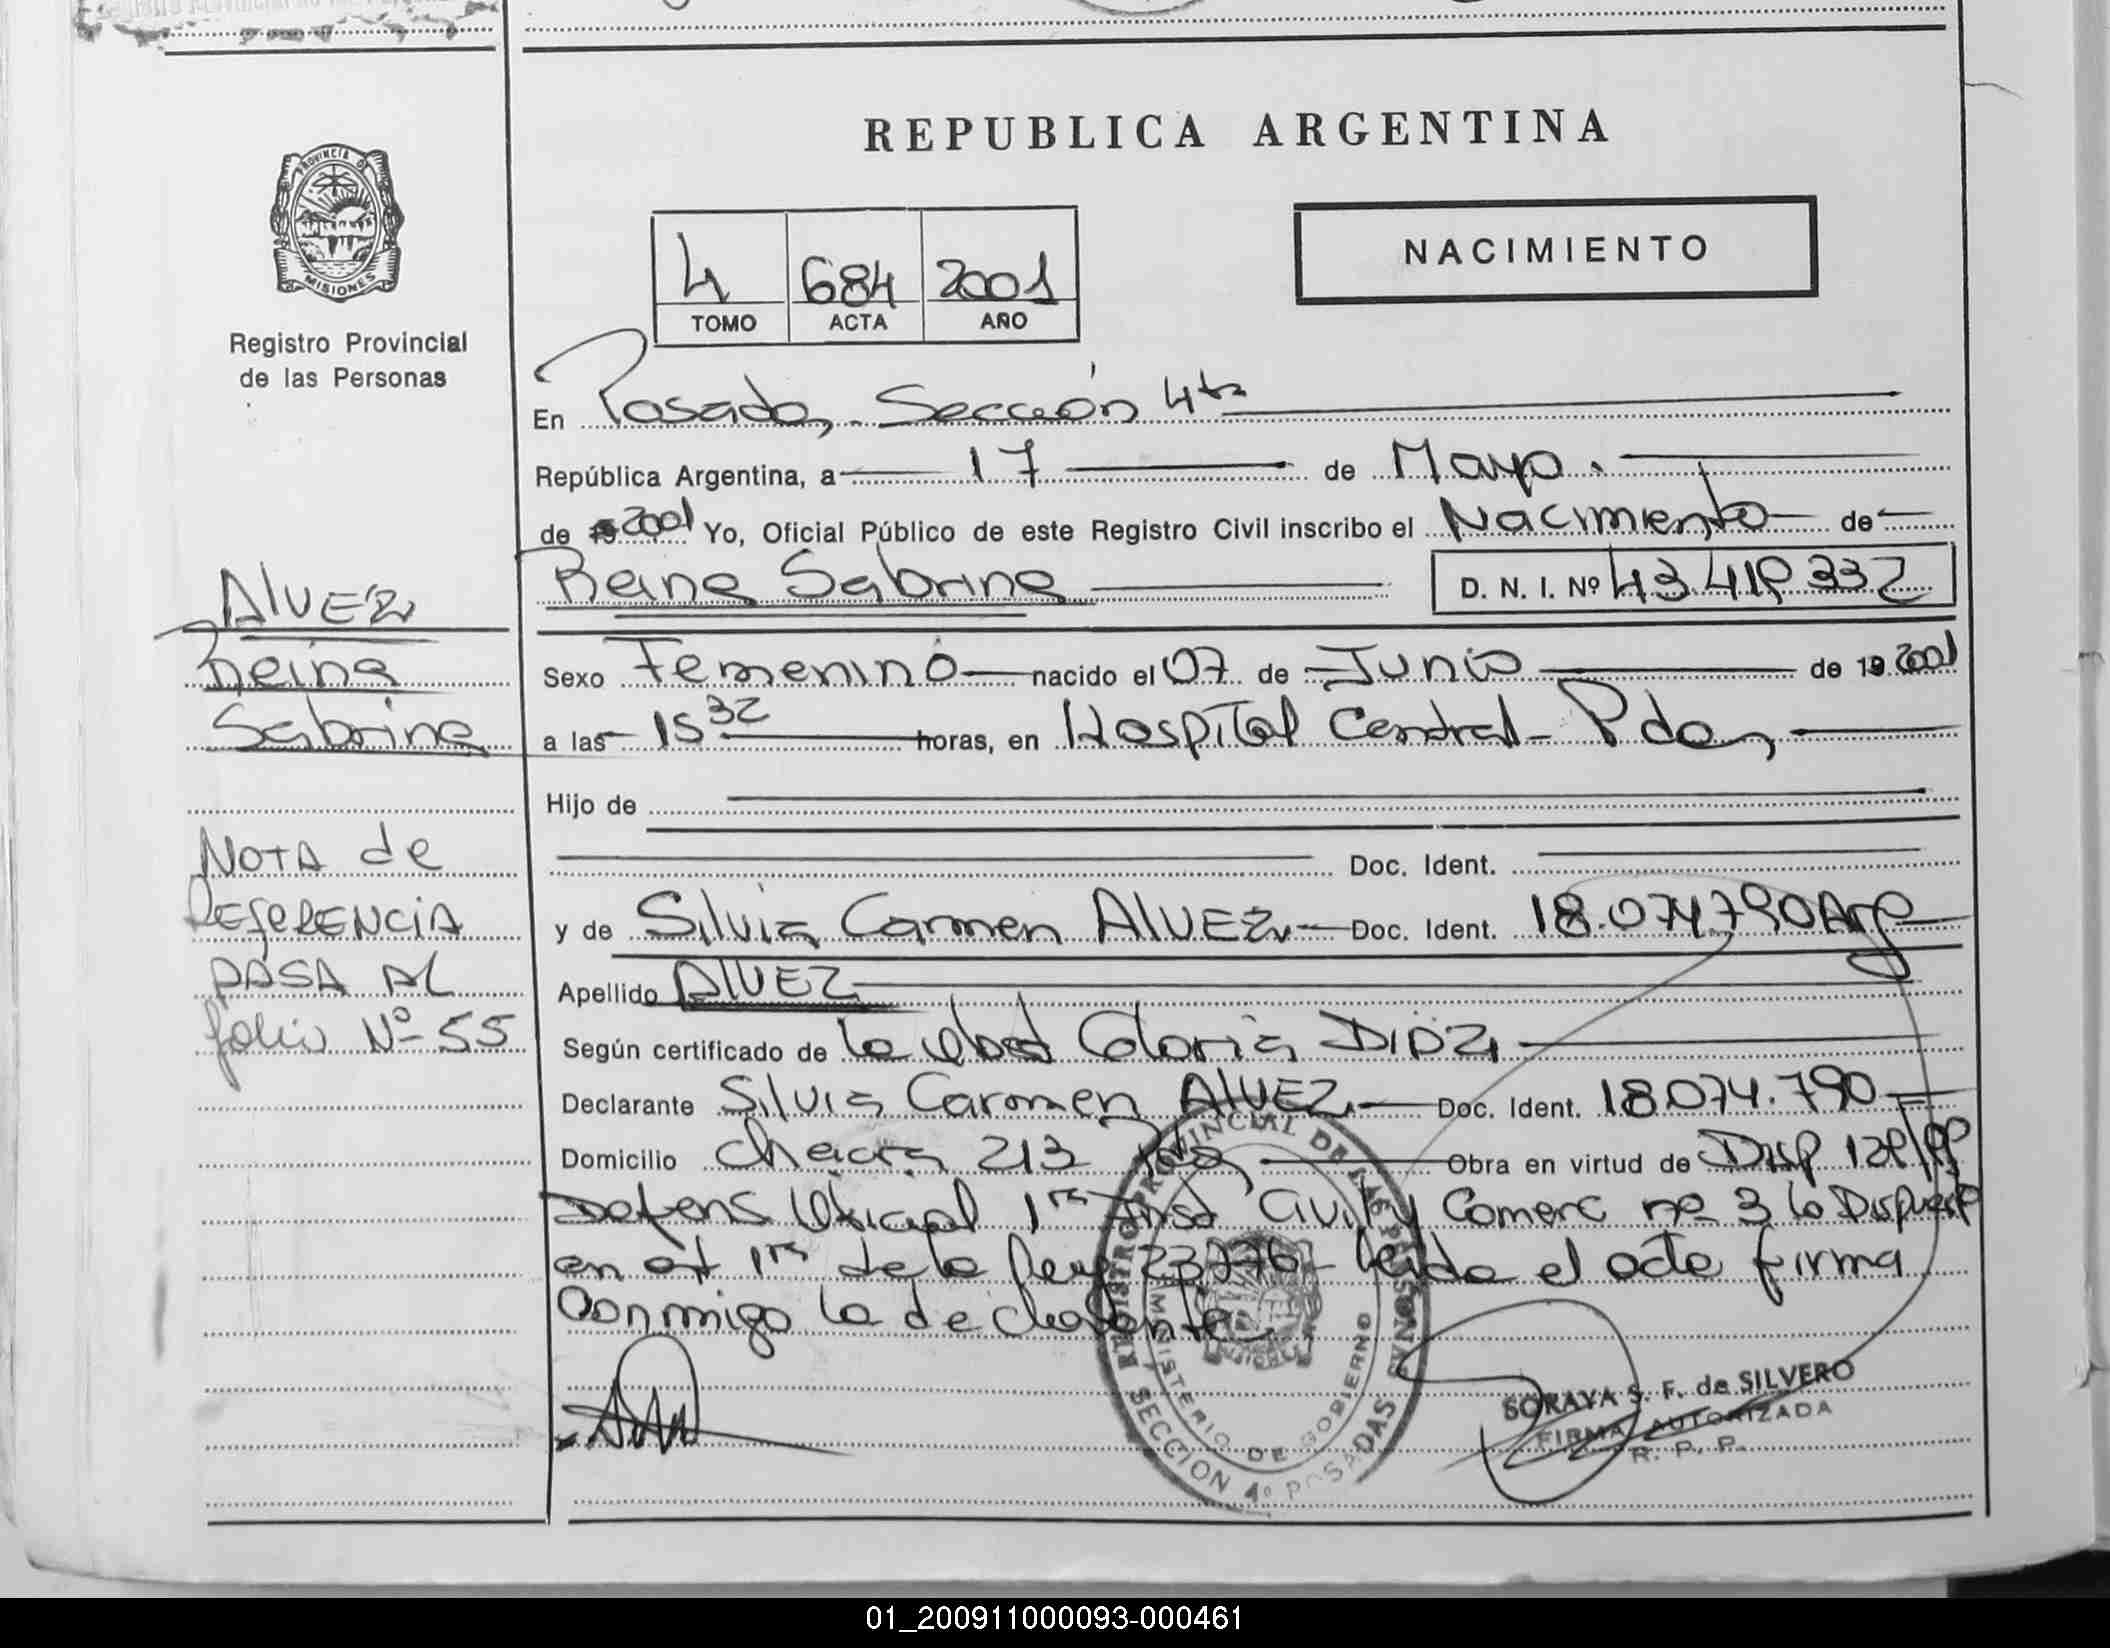 REPUBLICA ARGENTINA
PROVINCIA DE
MISIONES
Registro Provincial
de las Personas
4 684 2001
TOMO ACTA AÑO
NACIMIENTO
En Posadas, Sección 4ta
República Argentina, a 17 de Mayo.
de 2001 Yo, Oficial Público de este Registro Civil inscribo el Nacimiento de
Reina Sabrina D. N. I. Nº
Sexo Femenino nacido el 07 de Junio de 19 2001
a las 15 32 horas, en Hospital Central - Pdas,
Hijo de
Doc. Ident.
y de Silvia Carmen ALVEZ Doc. Ident. 18.074.790 Arg
Apellido ALVEZ
Según certificado de la Gloria DIAZ
Declarante Silvia Carmen ALVEZ Doc. Ident. 18.074.790
Domicilio Chacra 213 Pdas, Obra en virtud de Disp
Defens Oficial 1ra Inst Civil y Comerc no 3 lo Dispuesto
en art 1ra de la Ley leida el acta firma
conmigo la declarante
ALVEZ
Reina
Sabrina
NOTA de
REFERENCIA
PASA AL
folio Nº 55
REGISTRO PROVINCIAL DE LAS PERSONAS
MINISTERIO DE GOBIERNO
SECCION 4º POSADAS
SORAYA S. F. de SILVERO
FIRMA AUTORIZADA
R. P. P.
01_200911000093-000461